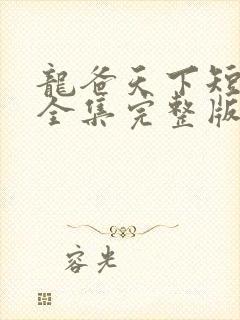 龍爸天下短
全集完整版
容光